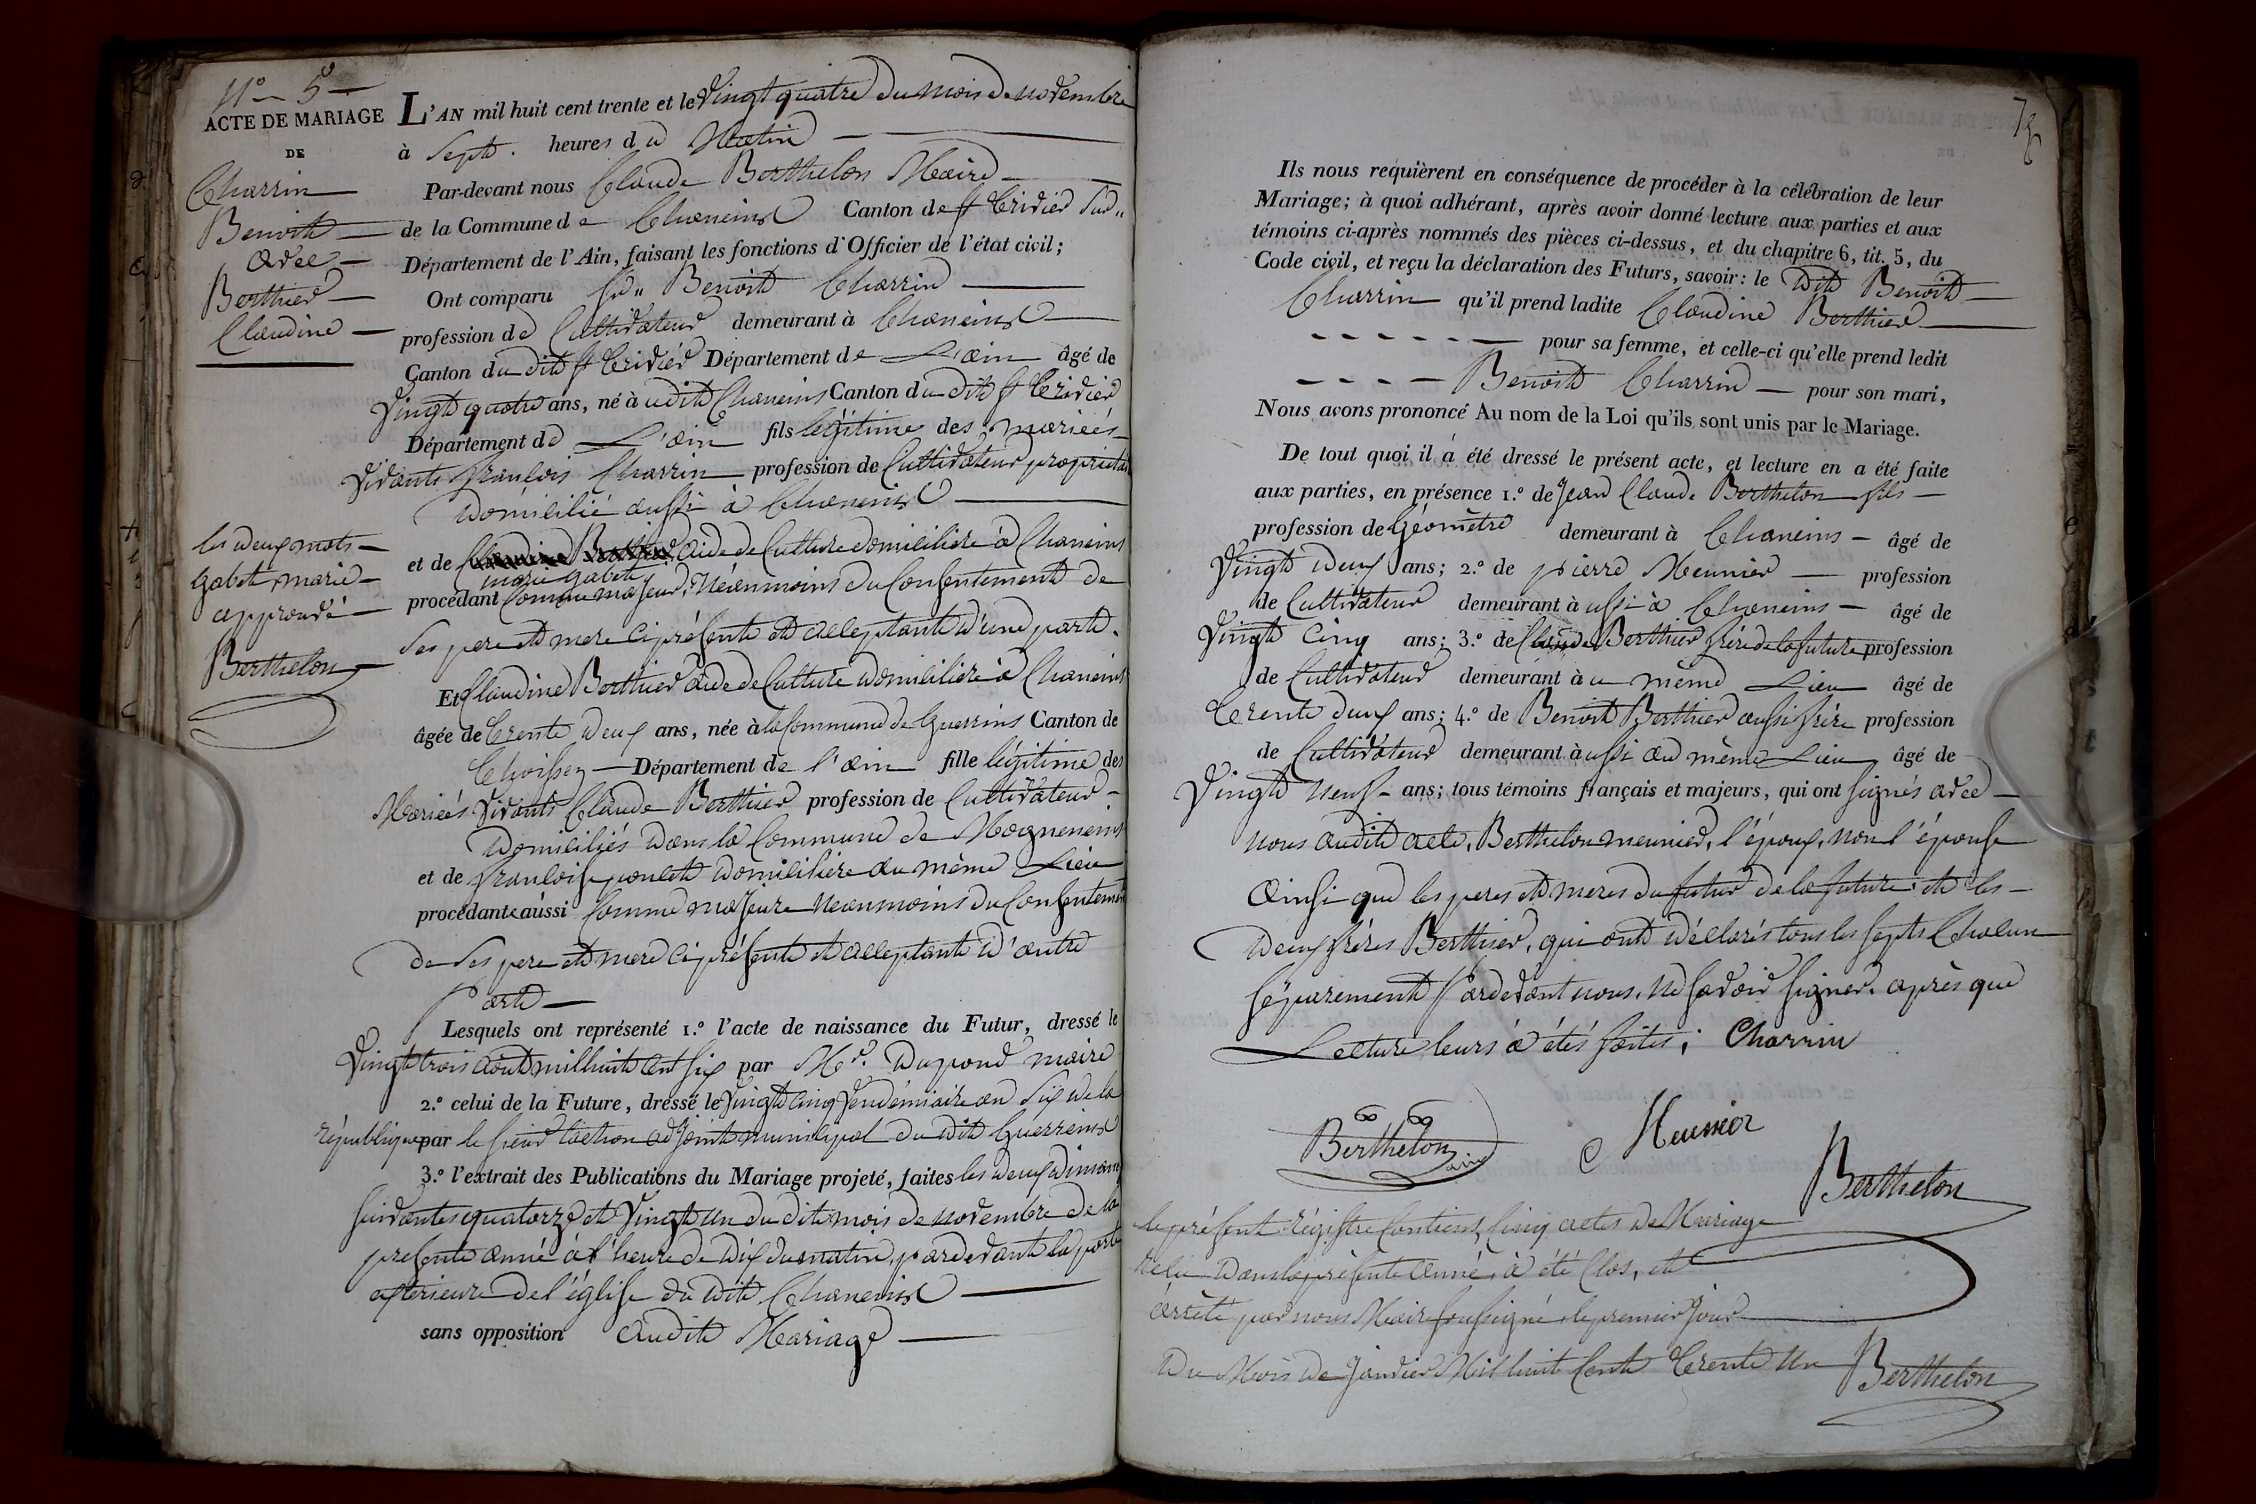 N.° 5
ACTE DE MARIAGE
DE
Charrin
Benoit
avec
Berthier
Claudine
les deux mots
gabet, marie
approuvé
Berthelon
L'AN mil huit cent trente et le Vingt quatre du mois de novembre
à Sept. heures du Matin
Par-devant nous Claude Berthelon Maire
de la Commune de Chaneins Canton de St Trivier Sur
Département de l'Ain, faisant les fonctions d'Officier de l'état civil;
Ont comparu Benoit Charrin
profession de Cultivateur demeurant à Chaneins
Canton du dit St Trivier Département de L'ain âgé de
Vingt quatre ans, né à udit Chaneins Canton du dit St Trivier
Département de L'ain fils légitime des mariées
Vivants françois Charrin profession de Cultivateur propriétai
Domicilié aussi à Chaneins
et de aide de Culture domiciliere à Chaneins
marie gabet
procédant Comme majeur, Néanmoins du Consentement de
Ses pere et mere ci présents et acceptants d'une part.
Et Claudine Berthier aide de Culture domiciliere à Chaneins
âgée de Trente deux ans, née à la Commune de Guerrins Canton de
Thoissey Département de l'ain fille légitime des
Mariées Vivants Claude Berthier profession de Cultivateur
Domiciliés dans la Commune de Mogneneins
et de françoise poncet domiciliere au même Lieu
procédante aussi Comme majeure Neanmoins du Consentement
de Ses pere et mere ci présents et acceptants d'autre
Part
Lesquels ont représenté 1.° l'acte de naissance du Futur, dressé le
Vingt trois aout mil huit cent six par Mr. Dupond maire
2.° celui de la Future, dressé le Vingt cinq Vendémiaire an Six de la
république par le Sieur adjoint municipal du dit Guerreins
3.° l'extrait des Publications du Mariage projeté, faites les deux dimanc
Suivantes quatorze et Vingt un du dit mois de novembre de la
presente année à l'heure de dix du matin, pardevant la porte
exterieure de l'église du dit Chaneins
sans opposition audit Mariage
78
Ils nous requièrent en conséquence de procéder à la célébration de leur
Mariage; à quoi adhérant, après avoir donné lecture aux parties et aux
témoins ci-après nommés des pièces ci-dessus, et du chapitre 6, tit. 5, du
Code civil, et reçu la déclaration des Futurs, savoir: le dit Benoit
Charrin qu'il prend ladite Claudine Berthier
pour sa femme, et celle-ci qu'elle prend ledit
Benoit Charrin pour son mari,
Nous avons prononcé Au nom de la Loi qu'ils sont unis par le Mariage.
De tout quoi il a été dressé le présent acte, et lecture en a été faite
aux parties, en présence 1.° de Jean Claude Berthelon fils
profession de Géomètre demeurant à Chaneins âgé de
Vingt deux ans; 2.° de pierre Meunier profession
de Cultivateur demeurant à ussi à Chaneins âgé de
Vingt Cinq ans; 3.° de Claude Berthier frère de la future profession
de Cultivateur demeurant à u même Lieu âgé de
Trente deux ans; 4.° de Benoit Berthier aussi frère profession
de Cultivateur demeurant à ussi au même Lieu âgé de
Vingt neuf ans; tous témoins français et majeurs, qui ont signés avec
nous audit acte, Berthelon meunier, l'époux, non l'épouse
ainsi que les peres et meres du futur de la future et les
deux frères Berthier, qui ont déclarés tous les septs Chacun
Séparement Pardevant nous, ne Savoir Signer, après que
Lecture leurs a étés faites; Charrin
Berthelon
aire
Meunier
Berthelon
le présent régistre Contient Cinq actes de Mariage
Reçu dans la présente année, à été Clos, et
arrêté par nous Maire Soussigné le premier Jour
Du Mois de Janvier Mil huit Cent Trente Un Berthelon